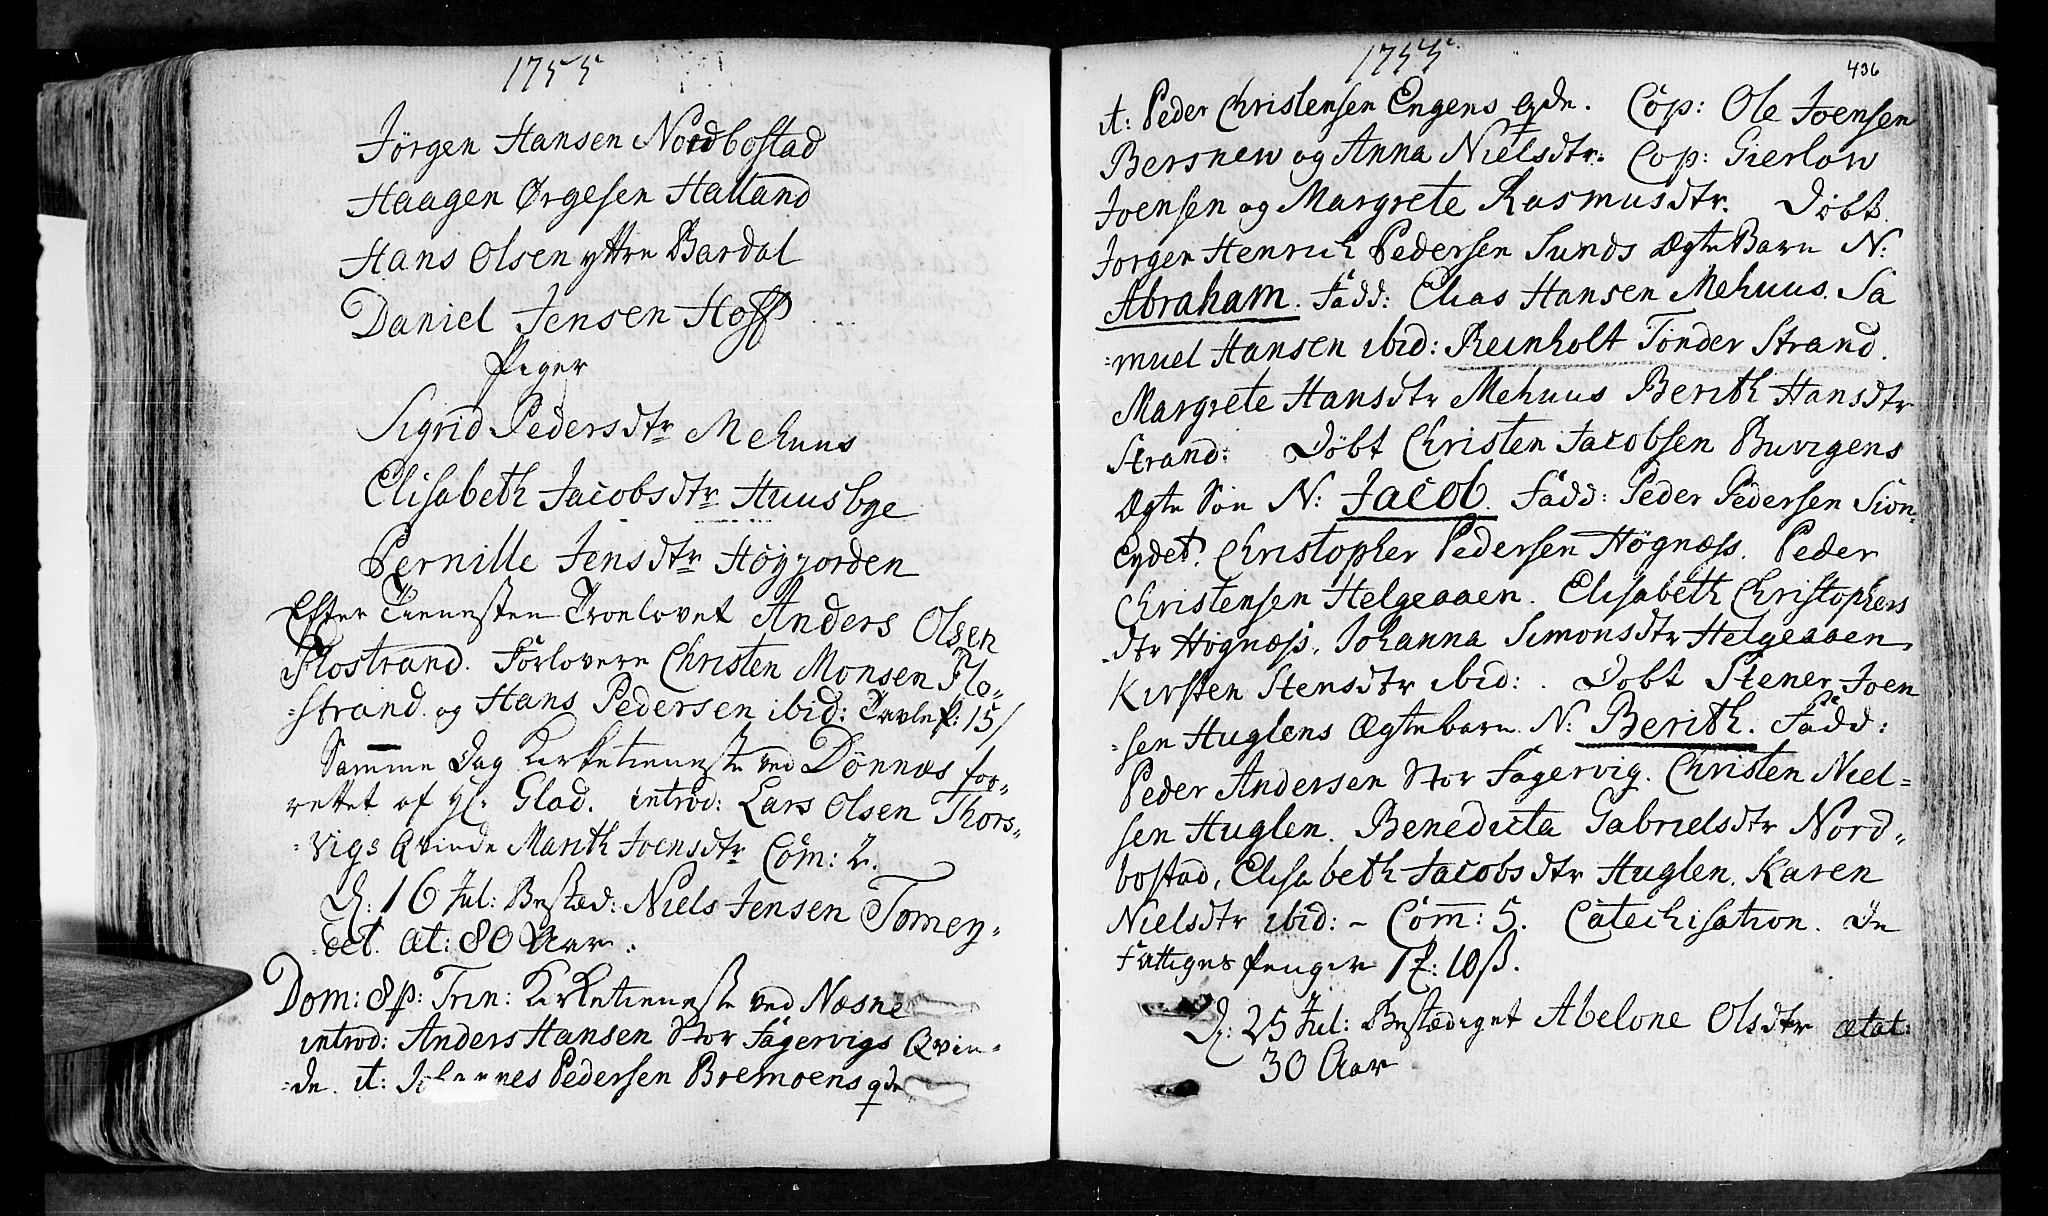 1755
Jörgen Hansen Nordbostad
Haagen Ørgesen Halland
Hans Olsen yttre Bardal
Daniel Jensen Hoff
Piger
Sigrid Pedersdtr Mehuus
Elisabeth Jacobsdtr Huusbye
Pernille Jensdtr Höyjorden
Efter Tienesten Troelovet Anders Olsen
Flostrand. Forlovere Christen Monsen Flo-
-strand og Hans Pedersen ibid: 15/
Samme Dag Kirketieneste ved Dönnæs for-
rettet af Hr. Glad. introd: Lars Olsen Thors-
-vigs Qvinde Marith Joensdtr Com: 2.
D: 16 Jul: Bested: Niels Jensen Tomey-
-det. æt: 80 Aar.
Dom: 8 p: Trin: Kirketieneste ved Næsne
introd: Anders Hansen Stor Fagervigs Qvin-
-de. it: Johannes Pedersen Bremoens qde
1755.
436
it: Peder Christensen Engens qde. Cop: Ole Joensen
Bersnew og Anna Nielsdtr. Cop: Gierlow
Joensen og Margrete Rasmusdtr. Döbt
Jorgen Henrich Pedersen Sunds ÆgteBarn N:
Abraham. Fadd: Elias Hansen Mehuus. Sa
-muel Hansen ibid: Reinholt Tönder Strand.
Margrete Hansdtr Mehuus Berith Hansdtr
Strand: Döbt Christen Jacobsen Buvigens
Ægte Sön N: Jacob. Fadd: Peder Pedersen Sion-
eydet. Christopher Pedersen Högnæss. Peder
Christensen Helgeaaen. Elisabeth Christophers
-dtr Hognæss, Johanna Simonsdtr Helgeaaen,
Kirsten Stensdtr ibid: . Dobt Stener Joen
-sen Huglens Ægtebarn N: Berith. Fadd:
Peder Andersen Stor Fagervig. Christen Niel-
sen Huglen. Benedicta Gabrielsdtr Nord-
bostad, Elisabeth Jacobsdtr Huglen. Karen
Nielsdtr ibid: - Com: 5. Catechisation. De
Fattiges Penger 1 : 10 ß.
D: 25 Jul: Bestediget Abelone Olsdtr ætat:
30 Aar